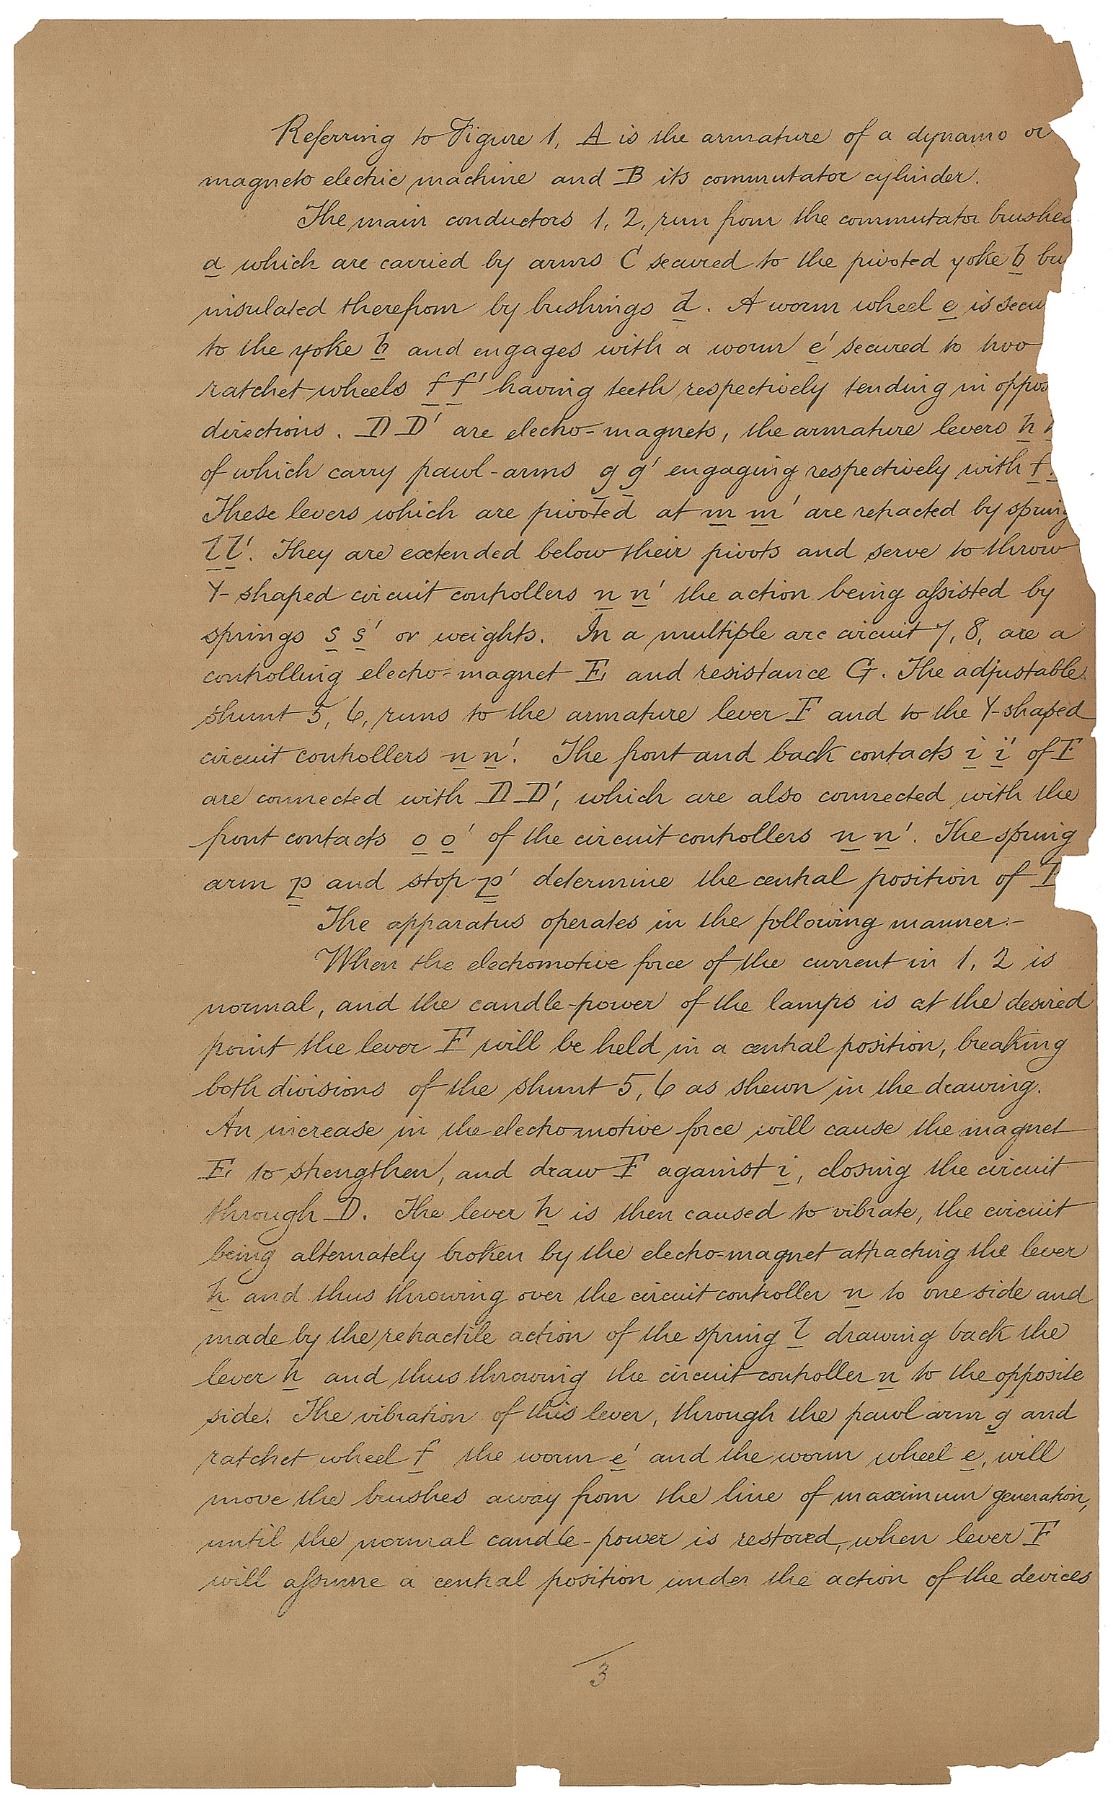 Referring to Figure 1, A is the armature of a dynamo or
magneto electric machine and B its commutator cylinder.
The main conductors 1, 2, run from the commutator brushes
a which are carried by arms C secured to the pivoted yoke b bu
insulated therefrom by bushings d. A worm wheel e is secu
to the yoke b and engages with a worm e' secured to two
ratchet wheels f f' having teeth respectively tending in oppos
directions. D D' are electro-magnets, the armature levers h h
of which carry pawl-arms g g' engaging respectively with f.
These levers which are pivoted at m m' are retracted by spring
l l'. They are extended below their pivots and serve to throw
Y-shaped circuit controllers n n' the action being assisted by
springs s s' or weights. In a multiple arc circuit 7, 8, are a
controlling electro-magnet E, and resistance G. The adjustable
shunt 5, 6, runs to the armature lever F and to the Y-shaped
circuit controllers n n'. The front and back contacts i i' of F
are connected with D D', which are also connected with the
front contacts o o' of the circuit controllers n n'. The spring
arm p and stop p' determine the central position of F
The apparatus operates in the following manner:-
When the electromotive force of the current in 1, 2 is
normal, and the candle-power of the lamps is at the desired
point the lever F will be held in a central position, breaking
both divisions of the shunt 5, 6 as shewn in the drawing.
An increase in the electromotive force will cause the magnet
E, to strengthen, and draw F against i, closing the circuit
through D. The lever h is then caused to vibrate, the circuit
being alternately broken by the electro-magnet attracting the lever
h and thus throwing over the circuit controller n to one side and
made by the retractile action of the spring l drawing back the
lever h and thus throwing the circuit controller n to the opposite
side. The vibration of this lever, through the pawl arm g and
ratchet wheel f the worm e' and the worm wheel e, will
move the brushes away from the line of maximum generation,
until the normal candle-power is restored, when lever F
will assume a central position under the action of the devices
3